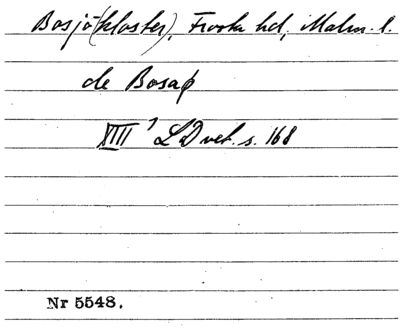 Bosjö(kloster), Frosta hd, Malm. l.
de Bosaþ
XIII¹ LD vet. s. 168
Nr 5548.